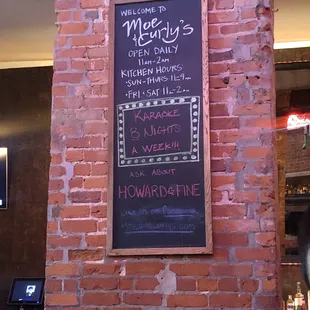 WELCOME TO
Moe
& Curly's
OPEN DAILY
11AM - 2AM
KITCHEN HOURS
SUN-THURS 11-9
FRI & SAT 11-
KARAOKE
8 NIGHTS
A WEEK!!!
ASK ABOUT
HOWARD & FINE